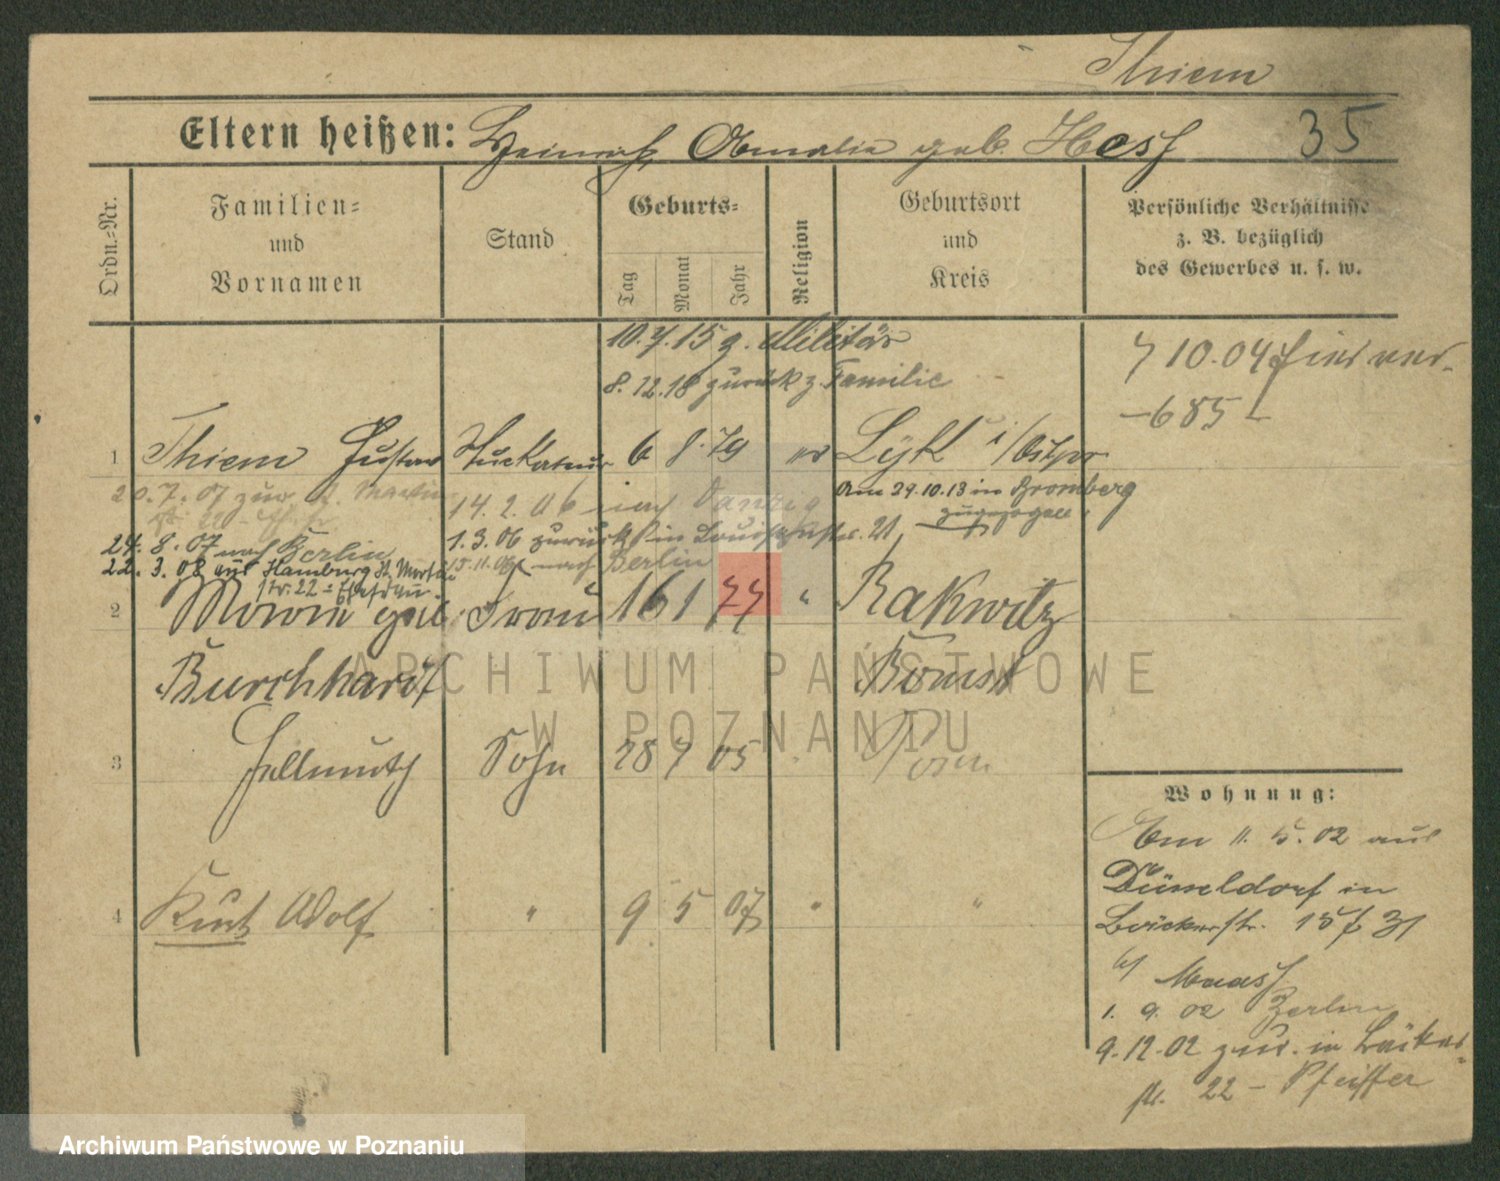 Thiem
Eltern heißen: Heinrich, Amalie geb. Hess 35
Ordn.-Nr.
Familien-
und
Vornamen
Stand
Geburts-
Tag
Monat
Jahr
Religion
Geburtsort
und
Kreis
Persönliche Verhältnisse
z. B. bezüglich
des Gewerbes u. s. w.
10.7.15 z. Militär
8.12.18 zurück z. Familie
7 10.04
685
1 Thiem Gustav Stuckateur 6 8. 79 ev Lyk i/Ostpr
20.7.07 zur St. Martin
14.2.06 nach Danzig
Am 29.10.13 in Bromberg
zugezogen
24.8.07 nach Berlin
1.3.06 zurück in
22.3.08 aus Hamburg St. Martin
str. 22 - Ehefrau
15.11.06 nach Berlin
2 geb. Frau 16 1 77 " Rakwitz
Burchhardt Bomst
3 Hellmuth Sohn 28 7 05 Posen
4 Kurt Adolf " 9 5 07 " "
Wohnung:
Am 11.5.02 aus
Düsseldorf in
Bäckerstr. 15 31
b/ Maass
1. 9. 02 Berlin
9.12.02 zur. in Bäcker-
str. 22 - Pfeiffer
ARCHIWUM PAŃSTWOWE
W POZNANIU
Archiwum Państwowe w Poznaniu